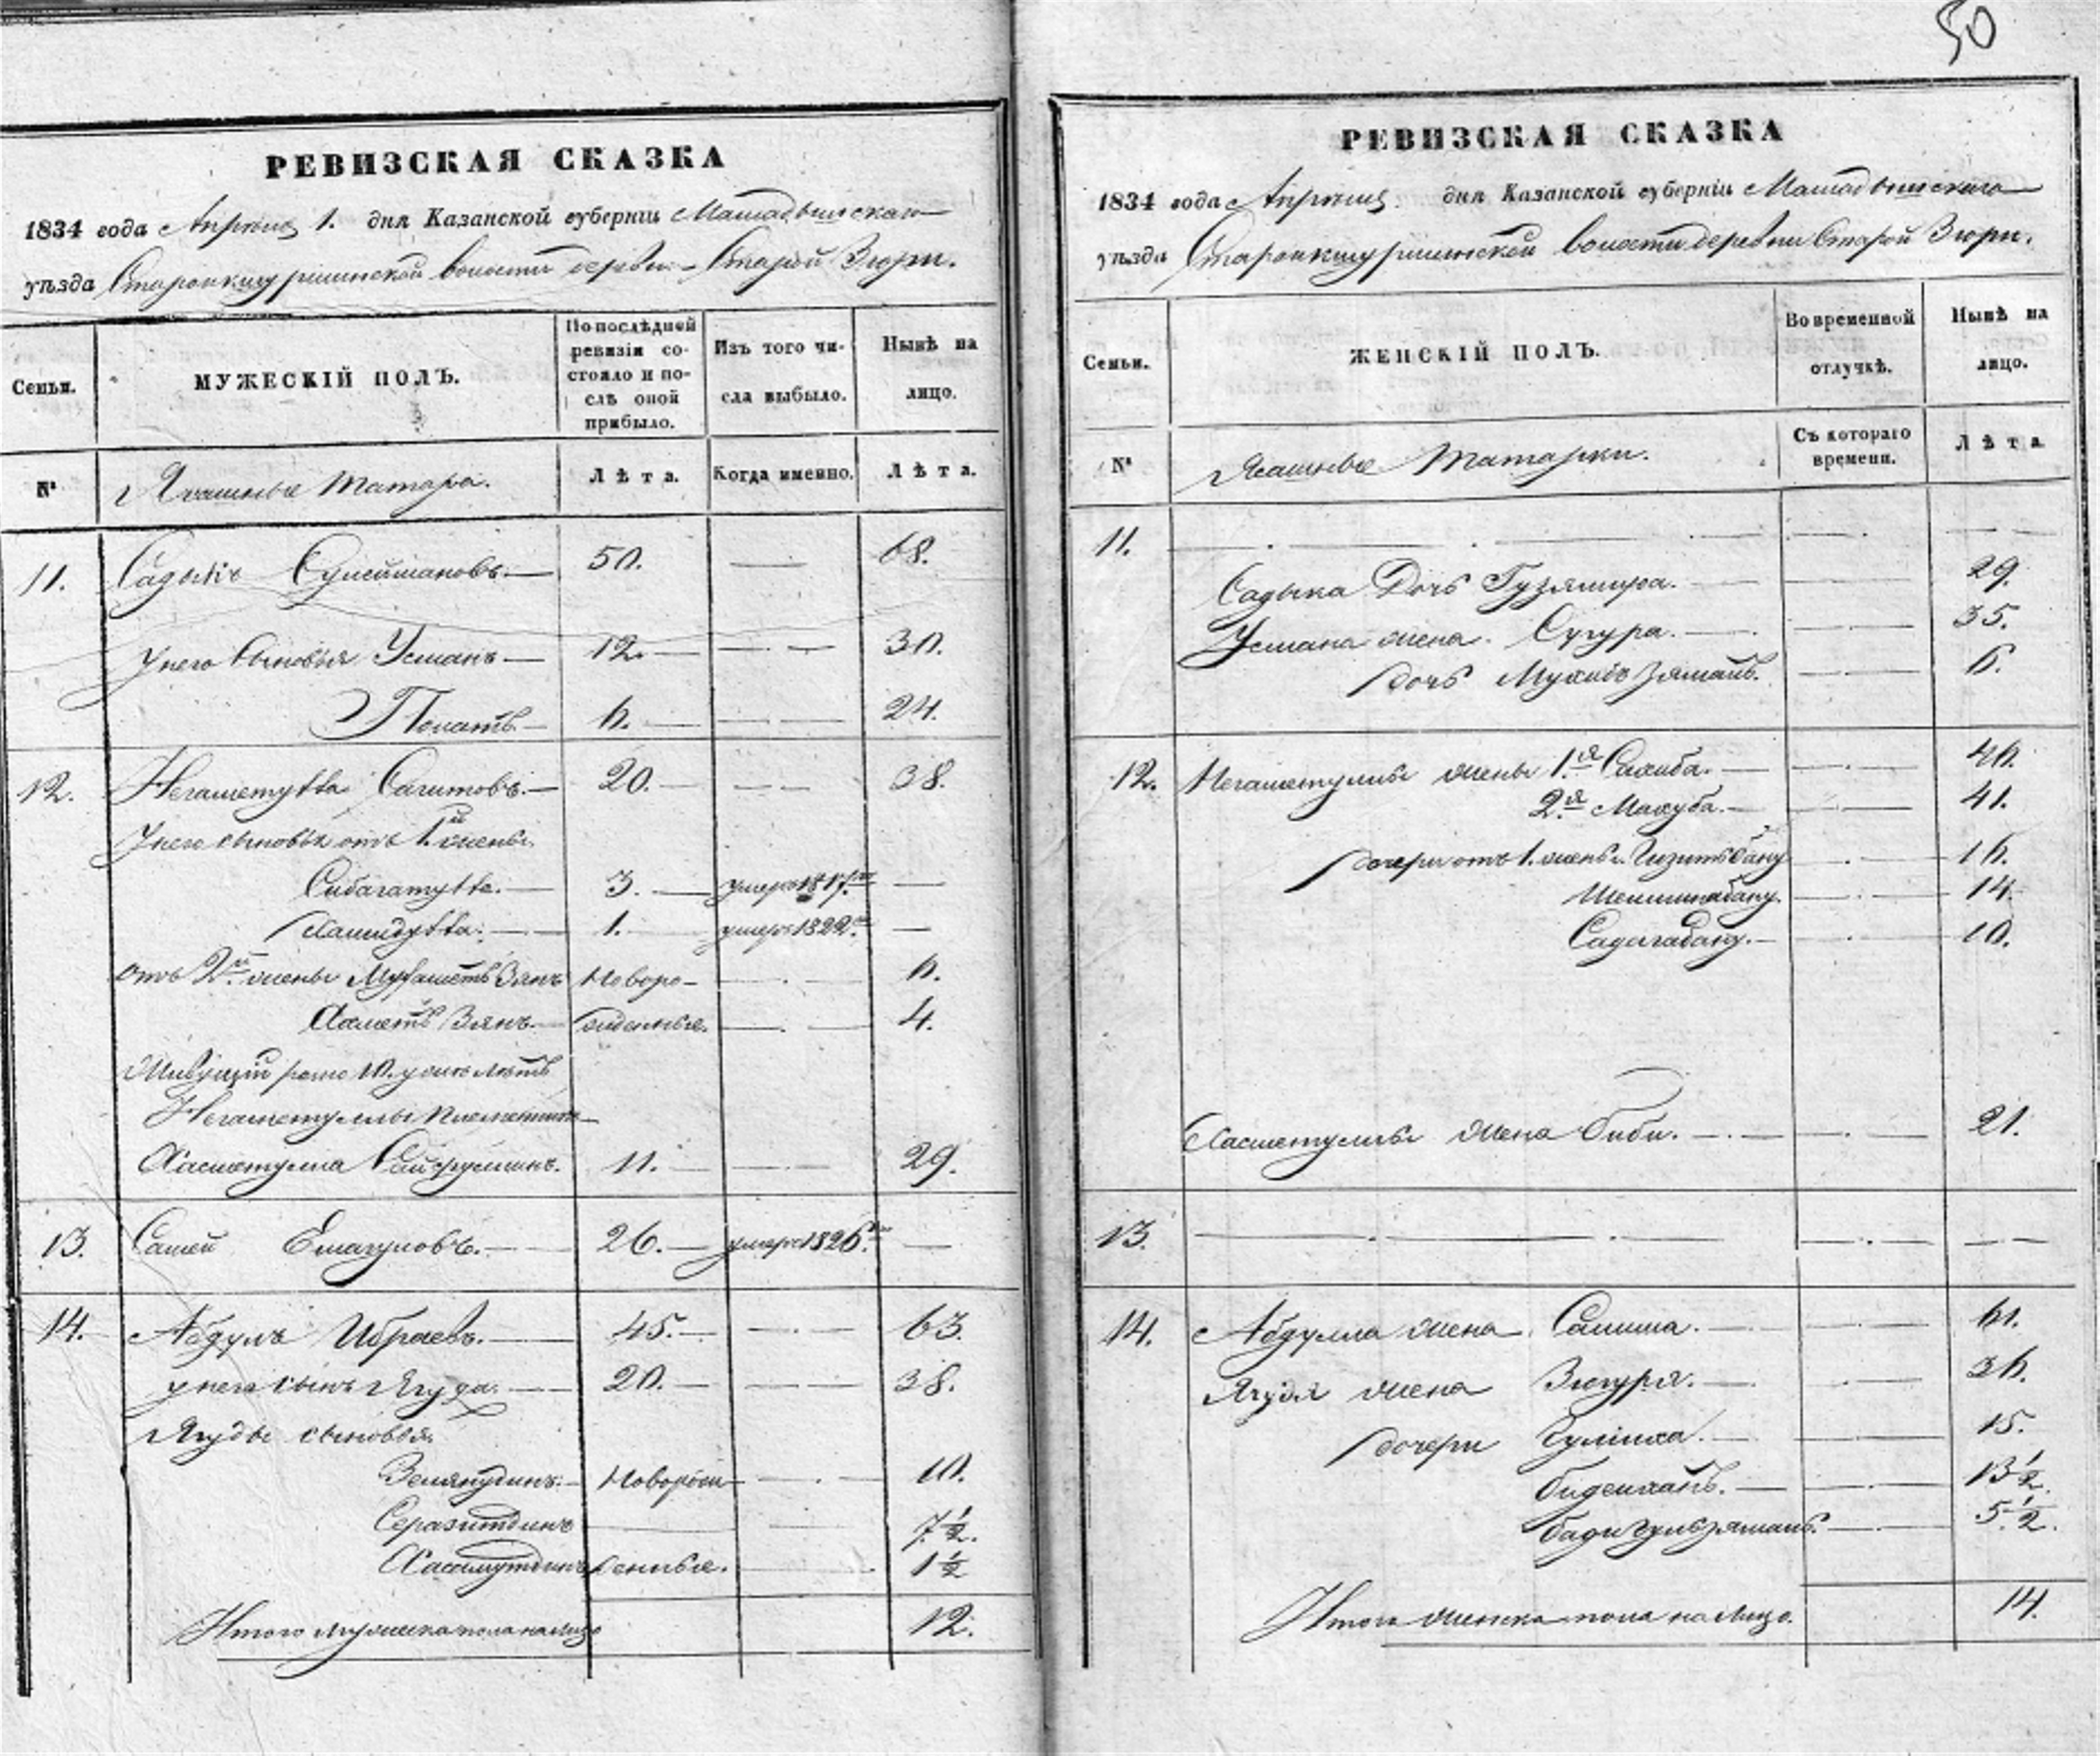 50
РЕВИЗСКАЯ СКАЗКА
1834 года Апреля 1. дня Казанской губерніи Мамадышскаго
уѣзда Старокишуришинской волости деревни Старой Зюри.
Семьи.
МУЖЕСКІЙ ПОЛЪ.
По послѣдней ревизіи состояло и послѣ оной прибыло.
Изъ того числа выбыло.
Нынѣ на лицо.
№
Ясашные Татара.
Лѣта.
Когда именно.
Лѣта.
11. Садыкъ Сулейманов. 50. 68.
У него сыновья Усманъ 12. 30.
Полатъ 6. 24.
12. Негаметулла Сагитовъ. 20. 38.
У него сыновья отъ 1й жены
Сибагатулла. 3. умеръ 1817го
Хамидулла. 1. умеръ 1822го
отъ 2й жены Мухаметъ Зянъ Новоро- 6.
Ахметъ Зянъ. жденные. 4.
Живущій
Негаметуллы племянникъ
Хасметулла Сайфулинъ. 11. 29.
13. Самей Емагуловъ. 26. умеръ 1826го
14. Абдулъ Ибраевъ. 45. 63.
у него сынъ Ягуда. 20. 38.
Ягуды сыновья.
Зелялудинъ. Новорож 10.
Серазитдинъ 7 1/2.
Хасамутдинъ денные. 1 1/2
Итого мужеска пола на лицо 12.
РЕВИЗСКАЯ СКАЗКА
1834 года Апреля дня Казанской губерніи Мамадышскаго
уѣзда Старокишуришинской волости деревни Старой Зюри.
Семьи.
ЖЕНСКІЙ ПОЛЪ.
Во временной отлучкѣ.
Нынѣ на лицо.
№
Ясашные Татарки.
Съ котораго времени.
Лѣта
11.
Садыка Дочь Гузямира. 29.
Усмана жена Сугура. 35.
дочь Мухибъ Зямалъ. 6.
12. Негаметуллы жены 1.я Сахиба. 46.
2.я Махуба. 41.
дочери отъ 1. жены. Гизитьбану 16.
Шемшинабану. 14.
Садигабану. 10.
Хасметуллы жена Биби. 21.
13.
14. Абдулла жена Салима. 61.
Ягуды жена Зюгура. 36.
дочери Гулниса. 15.
Бидежамалъ. 13 1/2.
Бадигульзямалъ. 5 1/2.
Итого женска пола на лицо. 14.